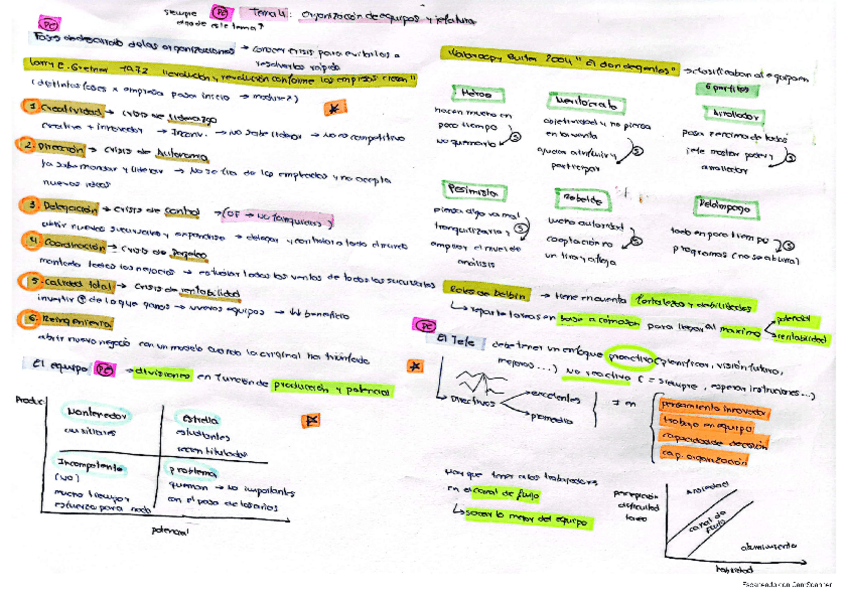 siempre PC Tema 4: Organización de equipos y jefatura
desde este tema?
PC
Fases de desarrollo de las organizaciones → conocer crisis para evitarlas o
resolverlas rápido
Larry E. Greiner 1972 "evolución y revolución conforme las empresas crecen"
(distintas fases x empresa pasa inicio → madurez)
1. Creatividad → crisis de liderazgo
creativo + innovador → → no sabe liderar → no competitivo
2. Dirección → crisis de autonomía
ya sabe mandar y liderar → no se fía de los empleados y no acepta
nuevas ideas
3. Delegación → crisis de control → (OF → no franquicias)
abrir nuevas sucursales y expandirse → delegar y controlar a todo el mundo
4. Coordinación → crisis de papeleo
montado todos los negocios → estudiar todas las ventas de todas las sucursales
5. Calidad total → crisis de rentabilidad
invertir de lo que ganas → nuevos equipos → beneficio
6. Reingeniería
abrir nuevo negocio con un modelo cuando lo original ha triunfado
El equipo PC → divisiones en función de producción y potencial
Produc
Mantenedor
auxiliares
Estrella
estudiantes
recién titulados
Incompetente
(no)
mucho tiempo y
esfuerzo para nada
problema
queman → no importantes
con el paso de los años
potencial
2004 "El don de gentes" → clasificaban al equipo en
6 perfiles
Héroe
hacen mucho en
poco tiempo
no quemarlo
S
Meritócrata
objetividad y no piensa
en la venta
ayuda a influir y
participar
S
Arrollador
pasa x encima de todos
jefe mostrar poder y
arrollador
S
Pesimista
piensa algo va mal
tranquilizarlo y
emplear el nivel de
análisis
S
Rebelde
mucha autoridad
coaptación no
un tira y afloja
S
Relámpago
todo en poco tiempo
programas (no se aburra)
S
Roles de Belbin → tiene en cuenta fortalezas y debilidades
reparte tareas en base a cómo son para llegar al máximo
potencial
rentabilidad
PC
El Jefe debe tener un enfoque proactivo (planificar, visión futuro,
mejoras ...) No reactivo (= siempre, esperar instrucciones...)
Directivos
excelentes
promedio
≠ en
pensamiento innovador
trabajo en equipo
capacidad de decisión
cap. organización
Hay que tener a los trabajadores
en el canal de flujo
sacar lo mejor del equipo
percepción
dificultad
tarea
ansiedad
canal de
flujo
aburrimiento
habilidad
Escaneado con CamScanner